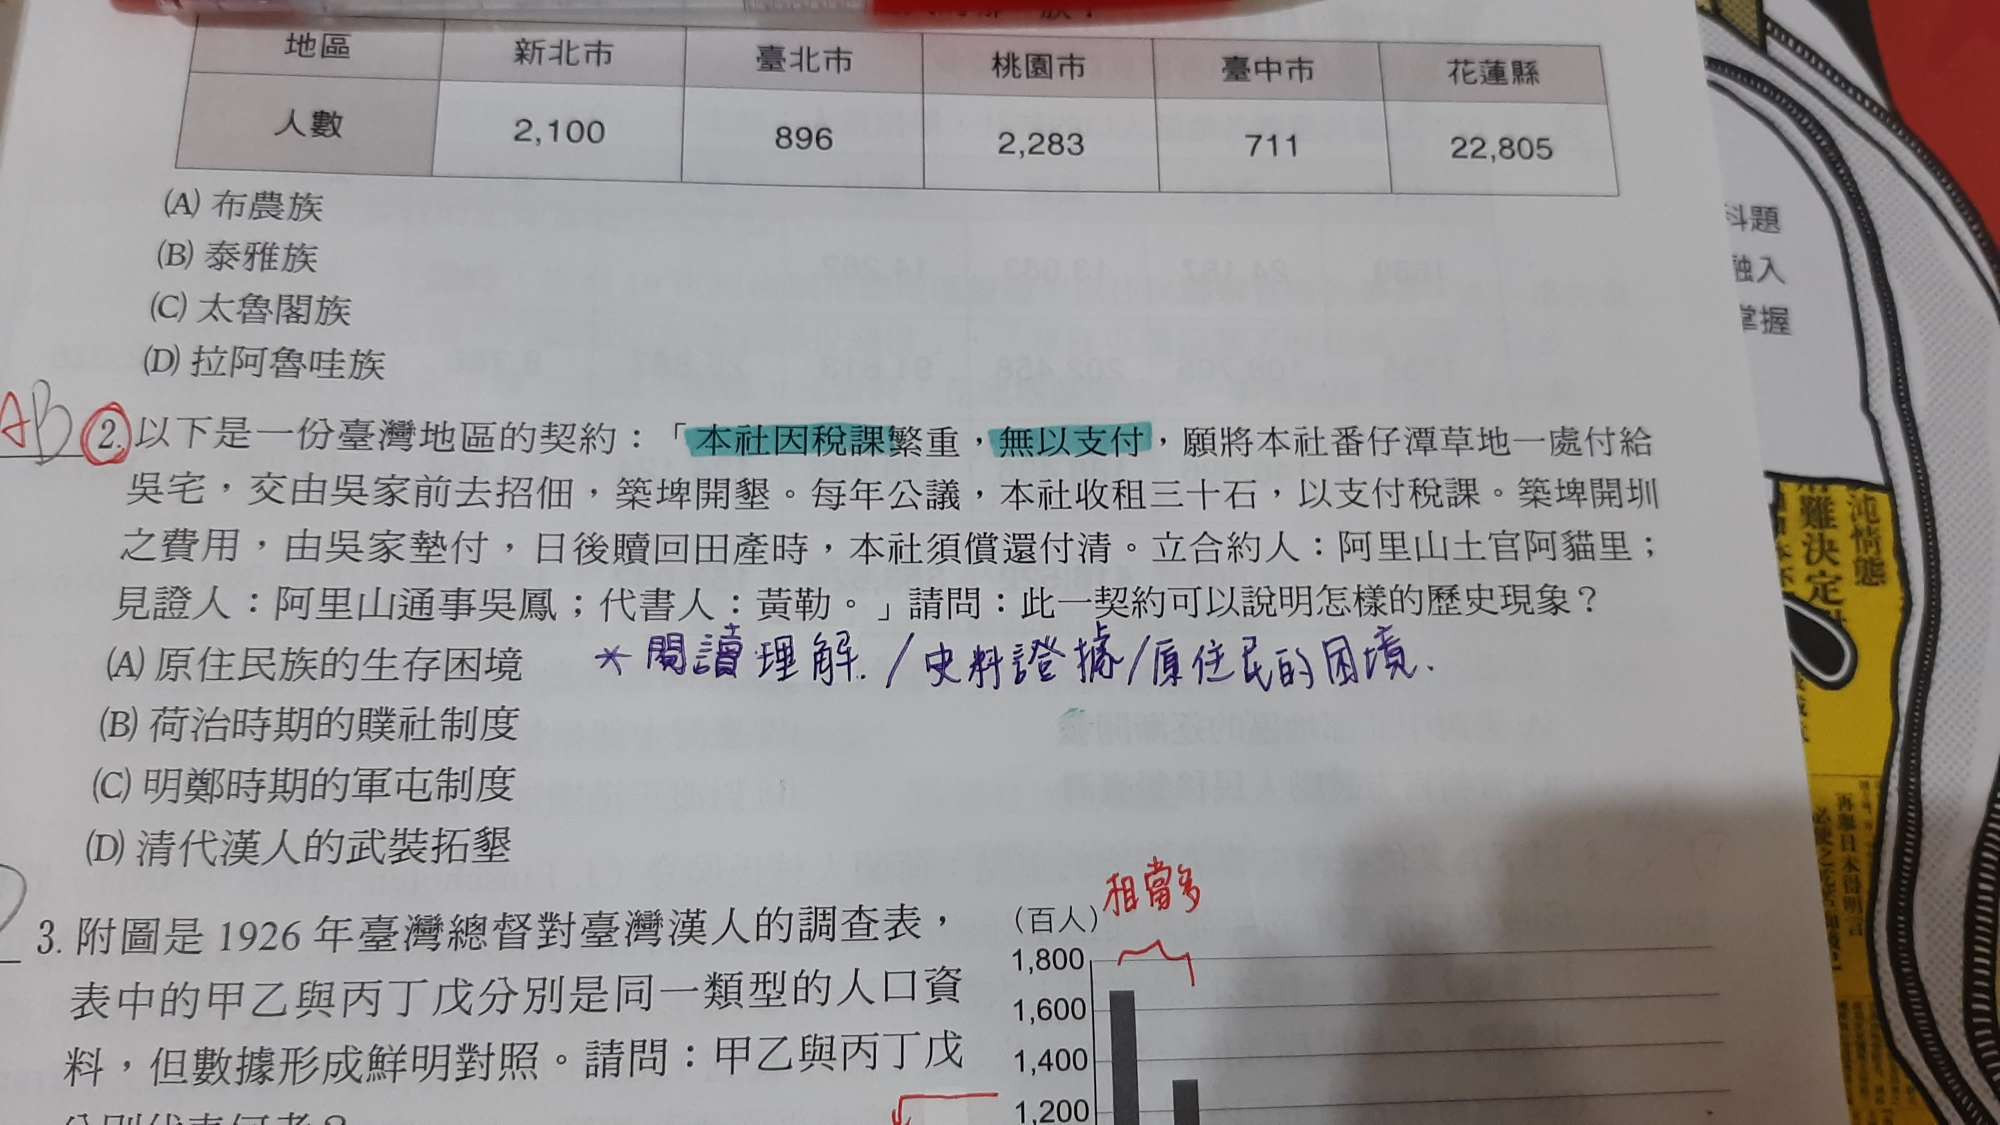 地區 新北市 臺北市 桃園市 臺中市 花蓮縣
人數 2,100 896 2,283 711 22,805
(A) 布農族
(B) 泰雅族
(C) 太魯閣族
(D) 拉阿魯哇族
AB
2. 以下是一份臺灣地區的契約：「本社因稅課繁重，無以支付，願將本社番仔潭草地一處付給
吳宅，交由吳家前去招佃，築埤開墾。每年公議，本社收租三十石，以支付稅課。築埤開圳
之費用，由吳家墊付，日後贖回田產時，本社須償還付清。立合約人：阿里山土官阿貓里；
見證人：阿里山通事吳鳳；代書人：黃勒。」請問：此一契約可以說明怎樣的歷史現象？
(A) 原住民族的生存困境
＊閱讀理解./史料證據/原住民的困境.
(B) 荷治時期的贌社制度
(C) 明鄭時期的軍屯制度
(D) 清代漢人的武裝拓墾
3. 附圖是 1926 年臺灣總督對臺灣漢人的調查表，
表中的甲乙與丙丁戊分別是同一類型的人口資
料，但數據形成鮮明對照。請問：甲乙與丙丁戊
分別代表何者？
相當多
（百人）
1,800
1,600
1,400
1,200
科題
融入
掌握
沌情態
難決定
再擊日本發明言